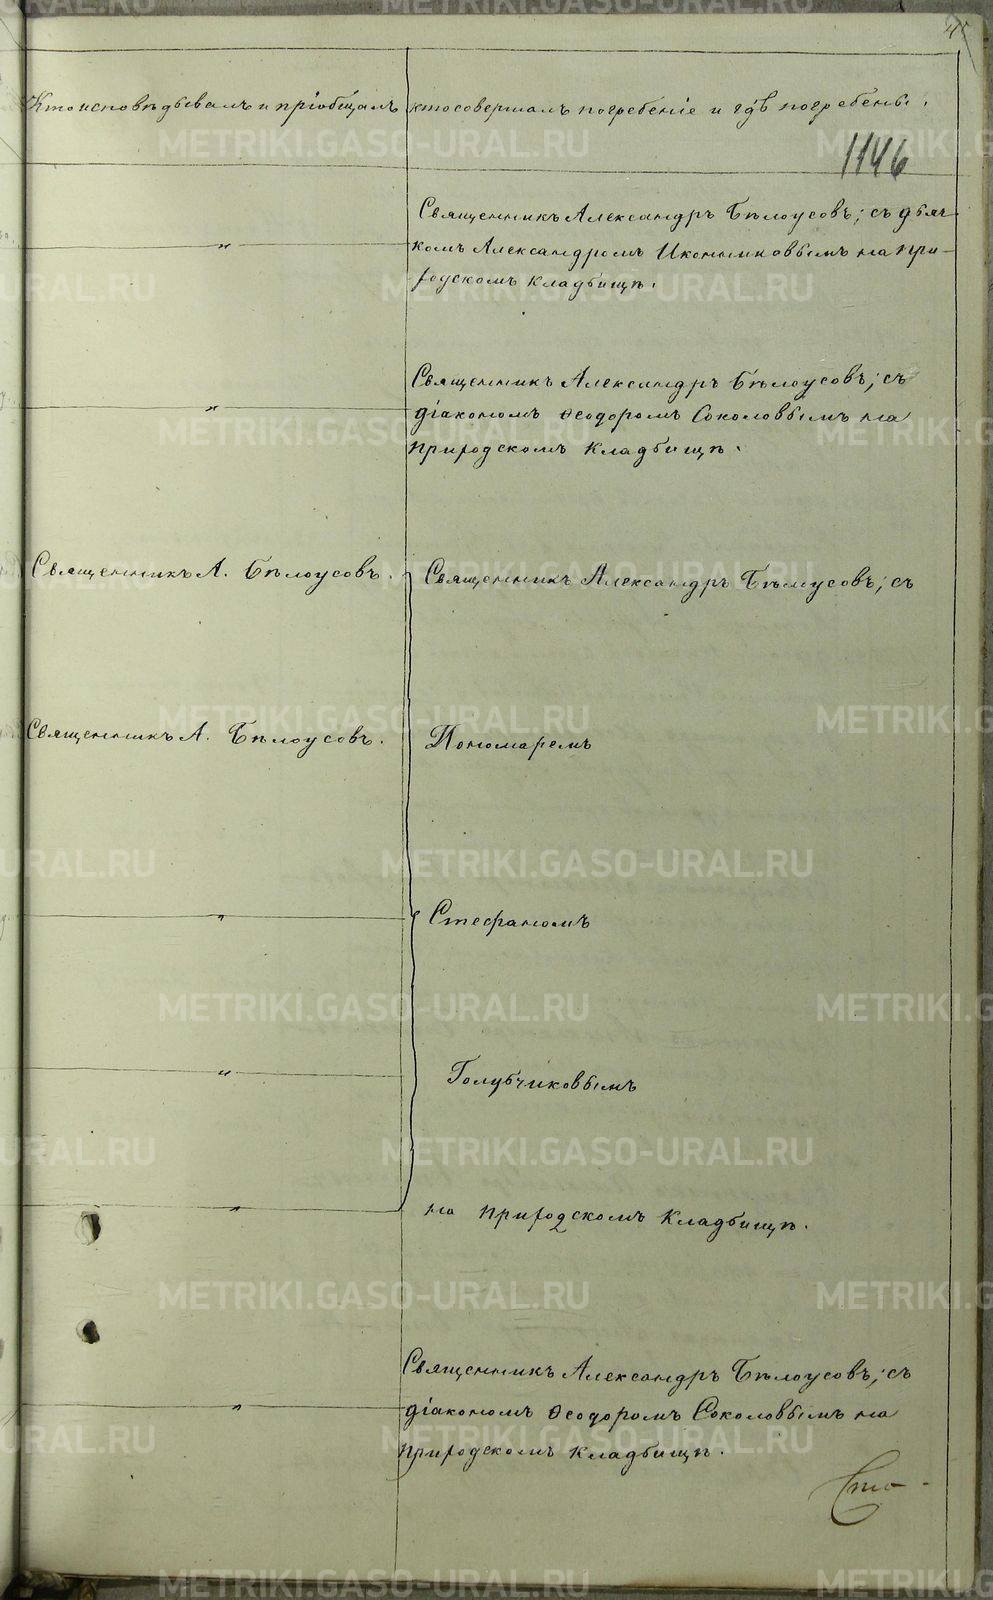 Кто исповѣдывалъ и пріобщалъ
кто совершалъ погребеніе и гдѣ погребены.
1146
Священникъ Александръ Бѣлоусовъ; съ дьяч-
комъ Александромъ Иконниковымъ на при-
родскомъ кладбищѣ.
Священникъ Александръ Бѣлоусовъ; съ
діакономъ Ѳеодоромъ Соколовымъ на
природскомъ кладбищѣ.
Священникъ А. Бѣлоусовъ.
Священникъ Александръ Бѣлоусовъ; съ
Священникъ А. Бѣлоусовъ.
Пономаремъ
Стефаномъ
Голубчиковымъ
на природскомъ кладбищѣ.
Священникъ Александръ Бѣлоусовъ; съ
діакономъ Ѳеодоромъ Соколовымъ на
природскомъ кладбищѣ.
METRIKI.GASO-URAL.RU